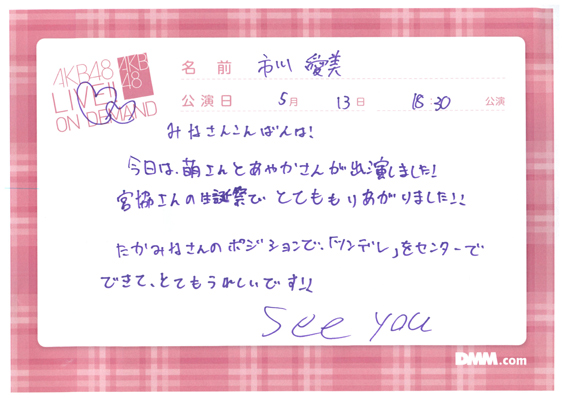 AKB48
LIVE!!
ON DEMAND
AKB
48
名前 市川 愛美
公演日 5月 13日 18:30 公演
みなさんこんばんは!
今日は、萌さんとあやかさんが出演しました!
宮脇さんの生誕祭で とてももりあがりました!!
たかみなさんのポジションで、「ツンデレ」をセンターで
できて、とてもうれしいです!!
See you
DMM.com